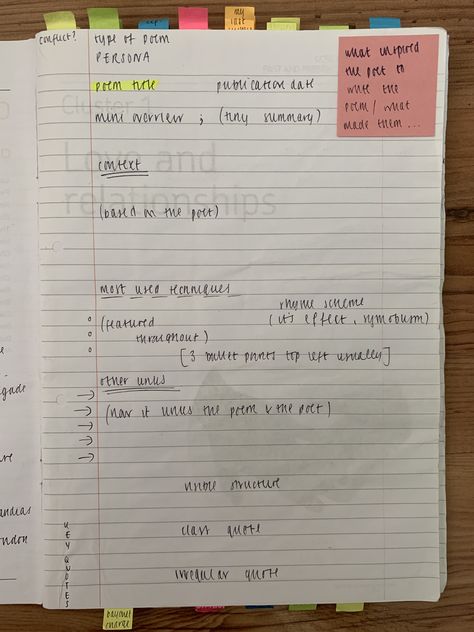 conflict?
type of poem
PERSONA
poem title publication date
mini overview ; (tiny summary)
what inspired
the poet to
write the
poem / what
made them ...
Cluster 1
Love and
relationships
context
(based on the poet)
most used techniques
rhyme scheme
(it's effect, symbolism)
(featured
throughout)
[3 bullet points top left usually]
other links
(how it links the poem & the poet)
whole structure
class quote
irregular quote
KEY QUOTES
bayonet
charge